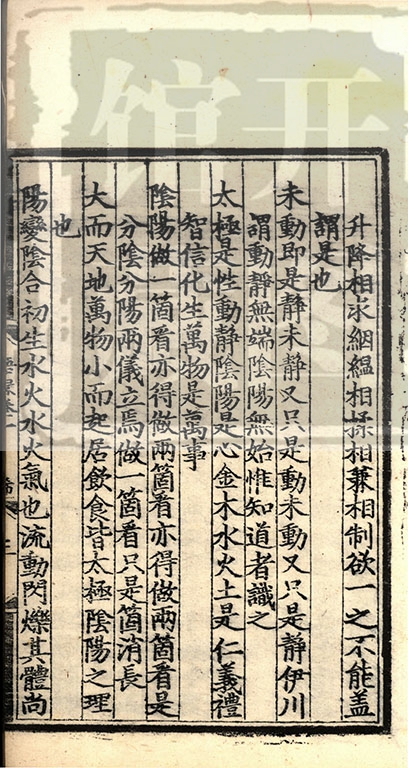 升降相求絪縕相揉相兼相制欲一之不能蓋
謂是也
未動即是静未静又只是動未動又只是静伊川
謂動静無端陰陽無始惟知道者識之
太極是性動静陰陽是心金木水火土是仁義禮
智信化生萬物是萬事
陰陽做一箇看亦得做兩箇看亦得做兩箇看是
分陰分陽兩儀立焉做一箇看只是箇消長
大而天地萬物小而起居飲食皆太極陰陽之理
也
陽變陰合初生水火水火氣也流動閃爍其體尚